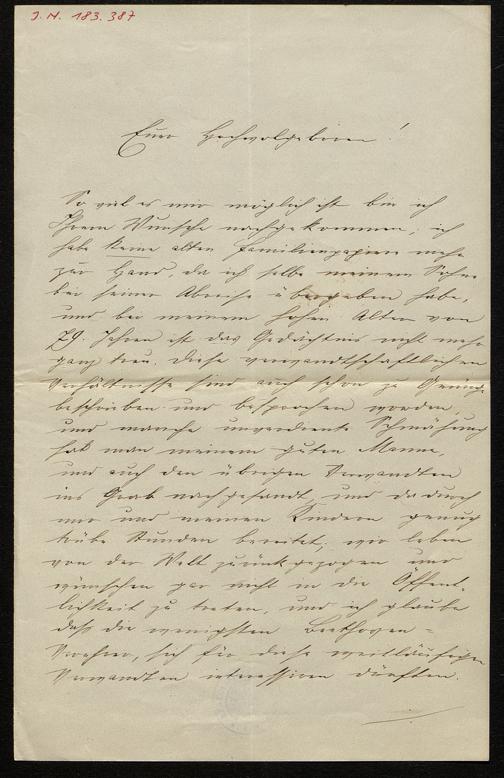 J. N. 183.387
Euer Hochwolgeboren!
So viel es mir möglich ist bin ich
Ihrem Wunsche nachgekommen, ich
habe keine alten Familienpapiere mehr
zur Hand, da ich selbe meinem Sohne
bei seiner Abreise übergeben habe,
und bei meinem hohen Alter von
79. Jahren ist das Gedächtnis nicht mehr
ganz treu. Diese verwandtschaftlichen
Verhältnisse sind auch schon zu Genüge
beschrieben und besprochen worden,
und manche unverdiente Schmähung
hat man meinem guten Manne,
und auch den übrigen Verwandten
ins Grab nachgesandt, und dadurch
mir und meinen Kindern genug
trübe Stunden bereitet; wir leben
von der Welt zurückgezogen und
wünschen gar nicht in die Öffent-
lichkeit zu treten, und ich glaube
daß die wenigsten Beethoven-
Verehrer, sich für diese weitläufigen
Verwandten interessiren dürften.